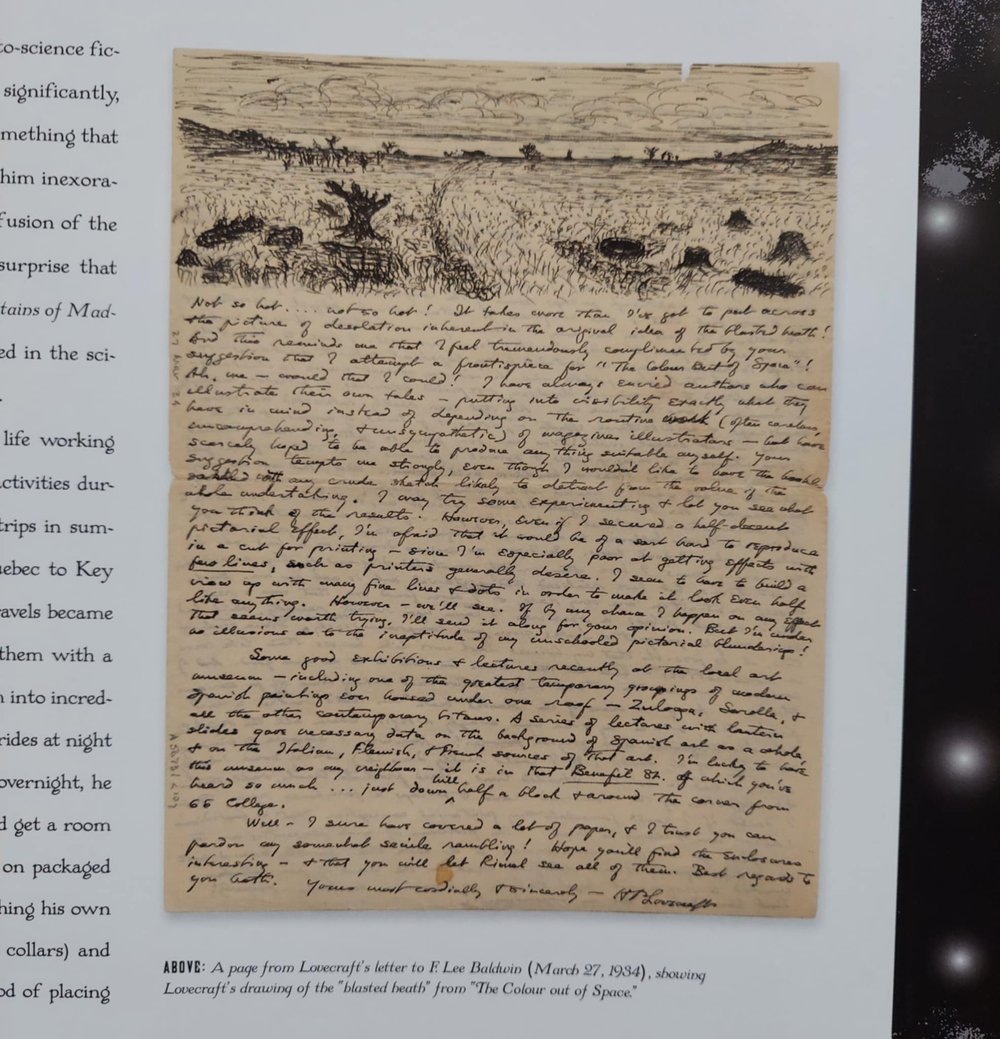 to-science fic-
significantly,
mething that
him inexora-
fusion of the
surprise that
tains of Mad-
ed in the sci-
.
life working
activities dur-
trips in sum-
uebec to Key
ravels became
them with a
n into incred-
rides at night
overnight, he
d get a room
on packaged
hing his own
collars) and
od of placing
Not so hot.... not so hot! It takes more than I've got to put across
the picture of desolation inherent in the original idea of the blasted heath!
And this reminds me that I feel tremendously complimented by your
suggestion that I attempt a frontispiece for "The Colour Out of Space"!
Ah, me — would that I could! I have always envied authors who can
illustrate their own tales — putting into visibility exactly what they
have in mind instead of depending on the routine work (often careless,
uncomprehending, & unsympathetic) of magazines illustrators — but have
scarcely hoped to be able to produce anything suitable myself. Your
suggestion tempts me strongly, even though I wouldn't like to have the
with any crude sketch likely to detract from the value of the
whole undertaking. I may try some experimenting & let you see what
you think of the results. However, even if I secured a half-decent
pictorial effect, I'm afraid that it would be of a sort hard to reproduce
in a cut for printing — since I'm especially poor at getting effects with
few lines, such as printers generally desire. I seem to have to build a
view up with many fine lines & dots in order to make it look even half
like anything. However — we'll see. If by any chance I happen on any effect
that seems worth trying, I'll send it along for your opinion. But I'm under
no illusions as to the ineptitude of my unschooled pictorial blunderings!
Some good exhibitions & lectures recently at the local art
museum — including one of the greatest temporary groupings of modern
Spanish paintings ever housed under one roof — Zuloaga, Sorolla, &
all the other contemporary titans. A series of lectures with lantern
slides gave necessary data on the background of Spanish art as a whole,
& on the Italian, Flemish, & French sources of that art. I'm lucky to have
this museum as my neighbour — it is in that Benefit St. of which you've
heard so much ... just down hill half a block & around the corner from
66 College.
Well — I sure have covered a lot of paper, & I trust you can
pardon my somewhat senile rambling! Hope you'll find the enclosures
interesting — & that you will let Rimel see all of them. Best regards to
you both. Yours most cordially & sincerely — HPLovecraft
27 Mar 34
ABOVE: A page from Lovecraft's letter to F. Lee Baldwin (March 27, 1934), showing
Lovecraft's drawing of the "blasted heath" from "The Colour out of Space."